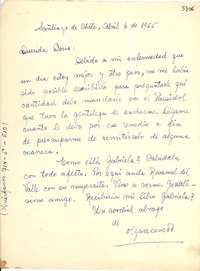 5306
Santiago de Chile, Abril 6 de 1955
Querida Doris:
Debido a mi enfermedad que
un día estoy mejor y otro peor, no me había
sido posible escribirle para preguntarle qué
cantidad debo mandarle por el Parsidol
que tuvo la gentileza de enviarme. Dígame
cuánto le debo por ese remedio a fin
de preocuparme de remitírselo de alguna
manera.
Como está Gabriela? Salúdela
con todo afecto. Por aquí anda Rosamel del
Valle con su mujercita. Vino a vernos.
simo amigo. Recibirían mi libro Gabriela?
Un cordial abrazo
de